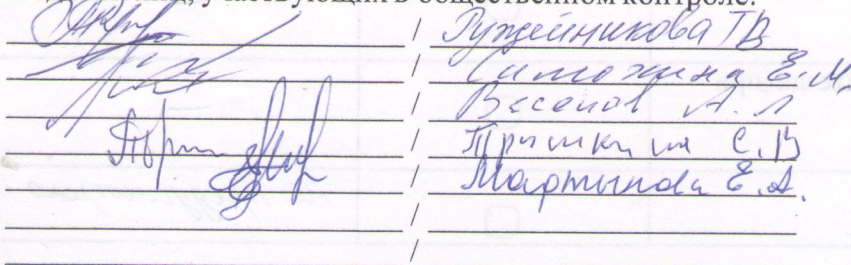 участвующих в общественном контроле:
/ Ружейникова Т В
/ Симохина Е.М.
/ Весонов А. Л
/ Тришкина С. В
/ Мартынова Е. А.
/
/